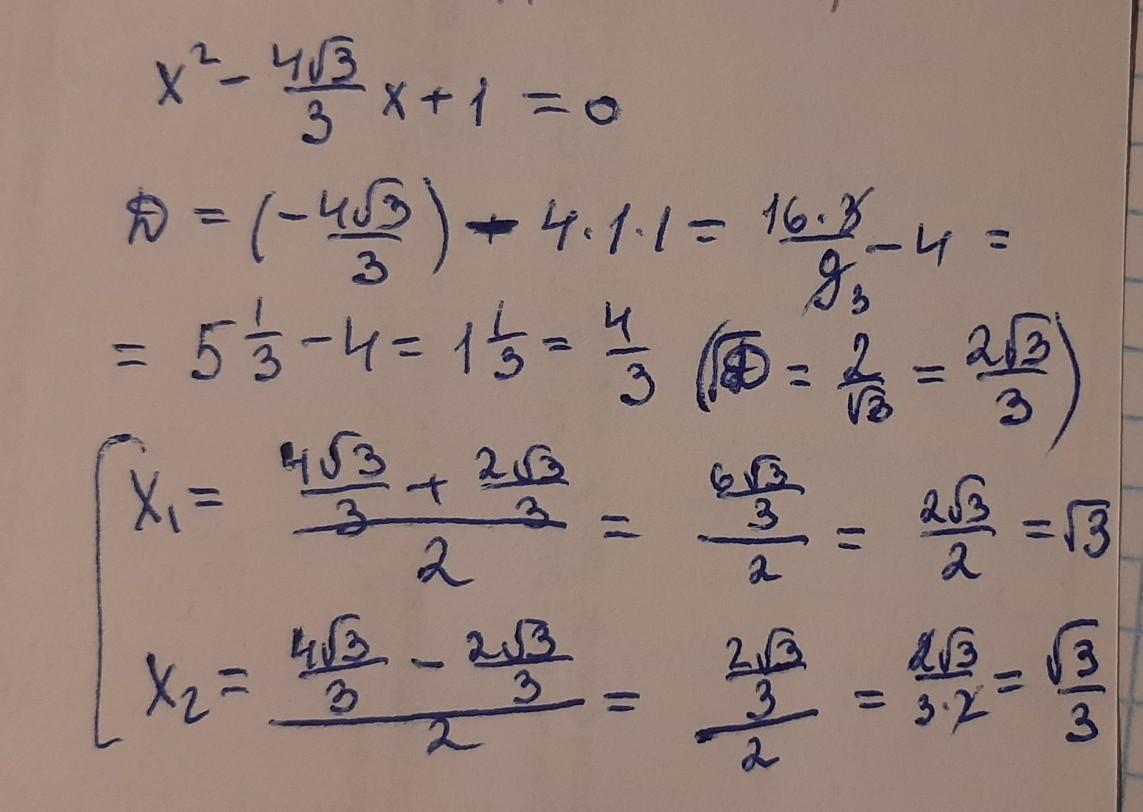 x² - 4√3/3 x + 1 = 0
D = (-4√3/3) - 4·1·1 = 16·3/9 3 - 4 =
= 5 1/3 - 4 = 1 1/3 = 4/3 (√D = 2/√3 = 2√3/3)
x₁ = (4√3/3 + 2√3/3)/2 = (6√3/3)/2 = 2√3/2 = √3
x₂ = (4√3/3 - 2√3/3)/2 = (2√3/3)/2 = 2√3/3·2 = √3/3